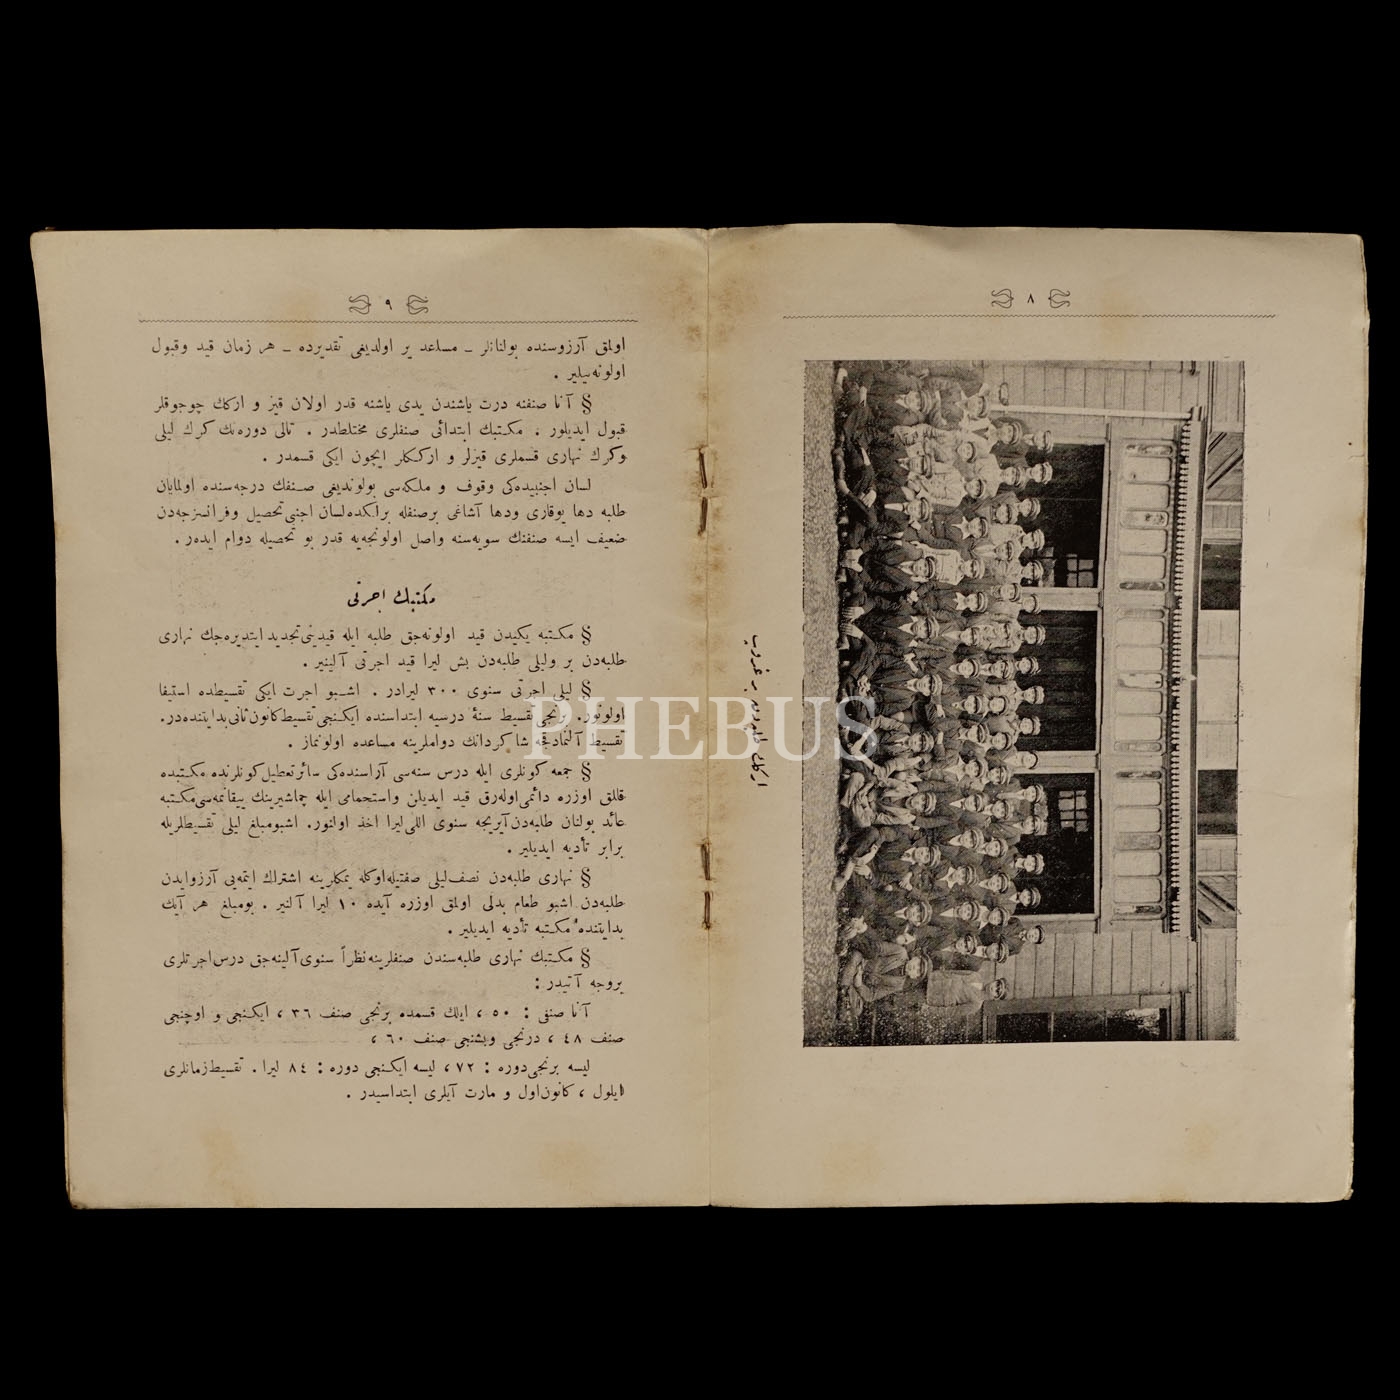 ٨
ارکك طلبه‌دن بر غروب
٩
اولمق آرزوسنده بولنانلر ـ مساعد یر اولدیغی تقدیرده ـ هر زمان قید وقبول
اولونه‌بیلیر .
§ آنا صنفنه درت یاشندن یدی یاشنه قدر اولان قیز و ارکك چوجوقلر
قبول ایدیلور . مکتبك ابتدائی صنفلری مختلطدر . تالی دوره‌نك کرك لیلی
وکرك نهاری قسملری قیزلر و ارککلر ایچون ایکی قسمدر .
لسان اجنبیده‌کی وقوف و ملکه‌سی بولوندیغی صنفك درجه‌سنده اولمایان
طلبه دها یوقاری ودها آشاغی برصنفله برلکده لسان اجنبی تحصیل وفرانسزجه‌دن
ضعیف ایسه صنفنك سویه‌سنه واصل اولونجه‌یه قدر بو تحصیله دوام ایده‌ر .
مکتبك اجرتی
§ مکتبه یکیدن قید اولونه‌جق طلبه ایله قیدینی تجدید ایتدیره‌جك نهاری
طلبه‌دن بر ولیلی طلبه‌دن بش لیرا قید اجرتی آلینیر .
§ لیلی اجرتی سنوی ٣٠٠ لیرادر . اشبو اجرت ایکی تقسیطده استیفا
اولونور. برنجی تقسیط سنهٔ درسیه ابتداسنده ایکنجی تقسیط کانون‌ثانی بدایتنده‌در.
تقسیط آلنمادقجه شاکردانك دواملرینه مساعده اولونماز .
§ جمعه کونلری ایله درس سنه‌سی آراسنده‌کی سائر تعطیل کونلرنده مکتبده
قالمق اوزره دائمی اوله‌رق قید ایدیلن واستحمامی ایله چماشیرینك ییقانمه‌سی مکتبه
عائد بولنان طلبه‌دن آیریجه سنوی اللی لیرا اخذ اولنور. اشبو مبلغ لیلی تقسیطلریله
برابر تأدیه ایدیلیر .
§ نهاری طلبه‌دن نصف لیلی صفتیله اوکله یمکلرینه اشتراك ایتمه‌یی آرزو ایدن
طلبه‌دن اشبو طعام بدلی اولمق اوزره آیده ١٠ لیرا آلنیر . بومبلغ هر آیك
بدایتنده مکتبه تأدیه ایدیلیر .
§ مکتبك نهاری طلبه‌سندن صنفلرینه نظراً سنوی آلینه‌جق درس اجرتلری
بروجه آتیدر :
آنا صنفی : ٥٠ ، ایلك قسمده برنجی صنف ٣٦ ، ایکنجی و اوچنجی
صنف ٤٨ ، درنجی وبشنجی صنف ٦٠ ،
لیسه برنجی دوره : ٧٢ ، لیسه ایکنجی دوره : ٨٤ لیرا . تقسیط زمانلری
ایلول ، کانون‌اول و مارت آیلری ابتداسیدر .
PHEBUS